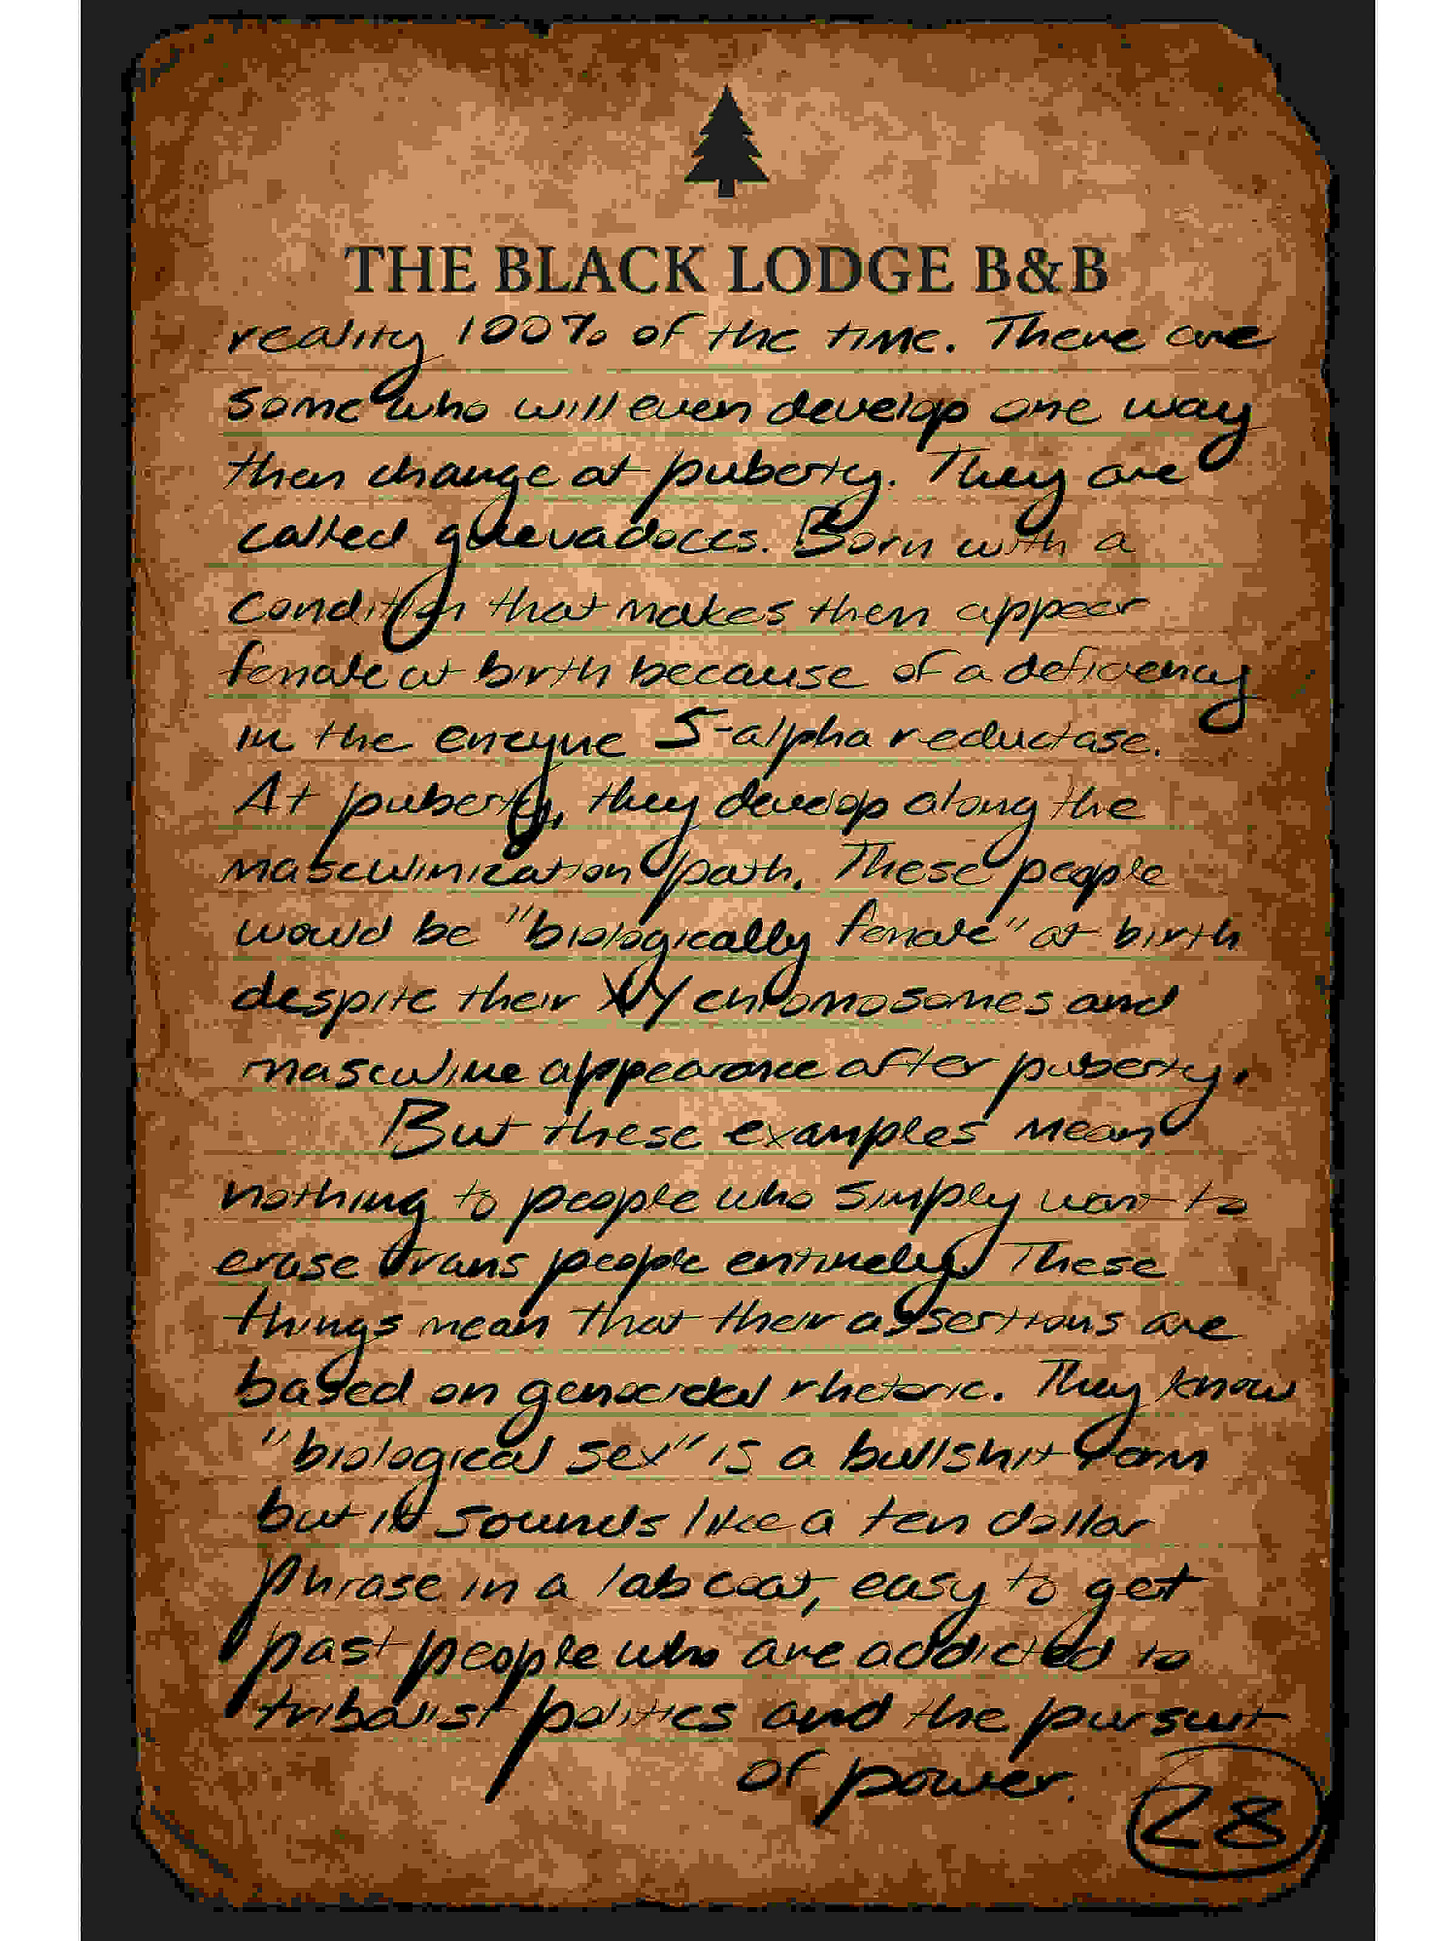 THE BLACK LODGE B&B
reality 100% of the time. There are
some who will even develop one way
then change at puberty. They are
called guevadoces. Born with a
condition that makes them appear
female at birth because of a deficiency
in the enzyme 5-alpha reductase.
At puberty, they develop along the
masculinization path. These people
would be "biologically female" at birth
despite their XY chromosomes and
masculine appearance after puberty.
But these examples mean
nothing to people who simply want to
erase trans people entirely. These
things mean that their assertions are
based on genocidal rhetoric. They know
"biological sex" is a bullshit term
but it sounds like a ten dollar
phrase in a lab coat, easy to get
past people who are addicted to
tribalist politics and the pursuit
of power.
28